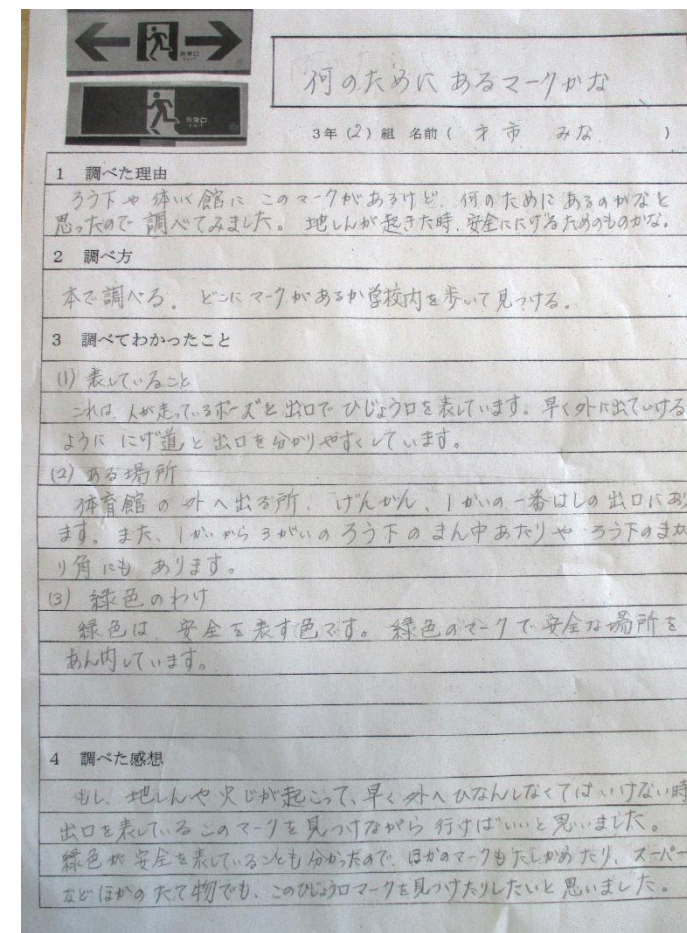 非常口
EXIT
非常口
EXIT
何のためにあるマークかな
3年(2)組 名前( 才市 みな )
1 調べた理由
ろう下や体いく館にこのマークがあるけど、何のためにあるのかなと
思ったので調べてみました。地しんが起きた時、安全ににげるためのものかな。
2 調べ方
本で調べる。どこにマークがあるか学校内を歩いて見つける。
3 調べてわかったこと
(1) 表していること
これは、人が走っているポーズと出口でひじょう口を表しています。早く外に出ていける
ように にげ道と出口を分かりやすくしています。
(2) ある場所
体育館の外へ出る所、げんかん、1かいの一番はしの出口にあり
ます。また、1かいから3がいのろう下のまん中あたりや ろう下のまが
り角にも あります。
(3) 緑色のわけ
緑色は、安全を表す色です。緑色のマークで安全な場所を
あん内しています。
4 調べた感想
もし、地しんや火じが起こって、早く外へひなんしなくてはいけない時
出口を表しているこのマークを見つけながら行けばいいと思いました。
緑色が安全を表していることも分かったので、ほかのマークもたしかめたり、スーパー
などほかのたて物でも、このひじょう口マークを見つけたりしたいと思いました。